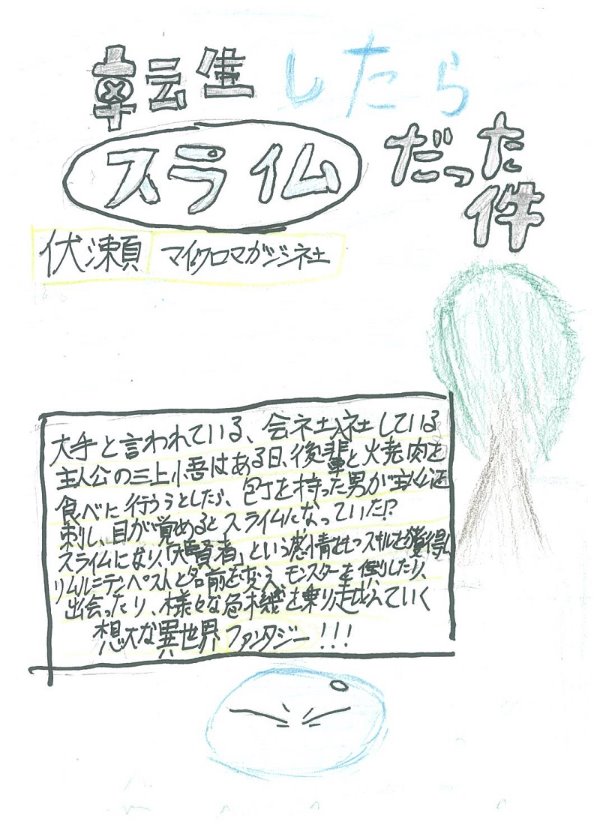 転生したら
スライム
だった
件
伏瀬 マイクロマガジン社
大手と言われている、会社入社している
主人公の三上小吾はある日、後輩と焼肉を
食べに行こうとしたら、包丁を持った男が主人公
刺し、目が覚めるとスライムになっていた!?
スライムになり、「大賢者」という感情をもつスキルを獲得し
リムルニテンペストと名前を変え、モンスターを倒したり、
出会ったり、様々な危機を乗り越えていく
想大な異世界ファンタジー!!!